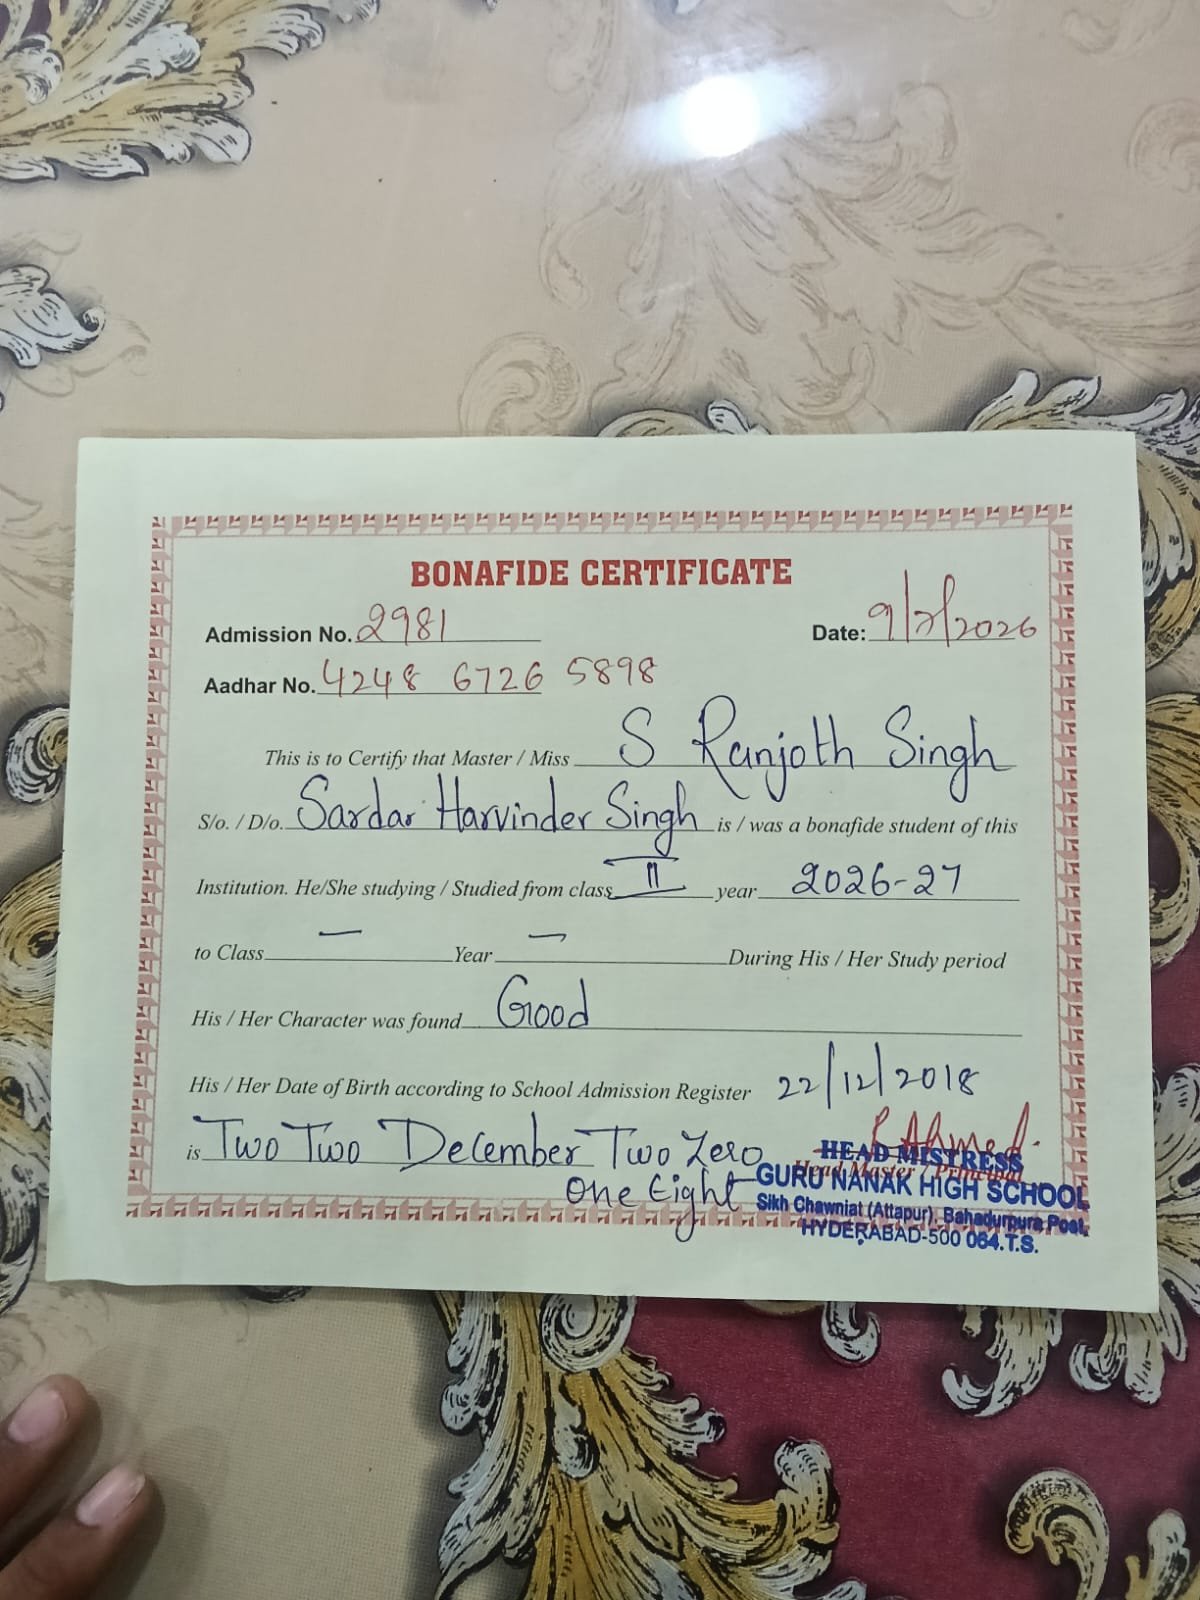 BONAFIDE CERTIFICATE
Admission No. 2981 Date: 9/7/2026
Aadhar No. 4248 6726 5898
This is to Certify that Master / Miss S Ranjoth Singh
S/o. / D/o. Sardar Harvinder Singh is / was a bonafide student of this
Institution. He/She studying / Studied from class II year 2026-27
to Class — Year — During His / Her Study period
His / Her Character was found Good
His / Her Date of Birth according to School Admission Register 22/12/2018
is Two Two December Two Zero
One Eight
R Ahmed.
HEAD MISTRESS
Head Master / Principal
GURU NANAK HIGH SCHOOL
Sikh Chawniat (Attapur), Bahadurpura Post,
HYDERABAD-500 064.T.S.